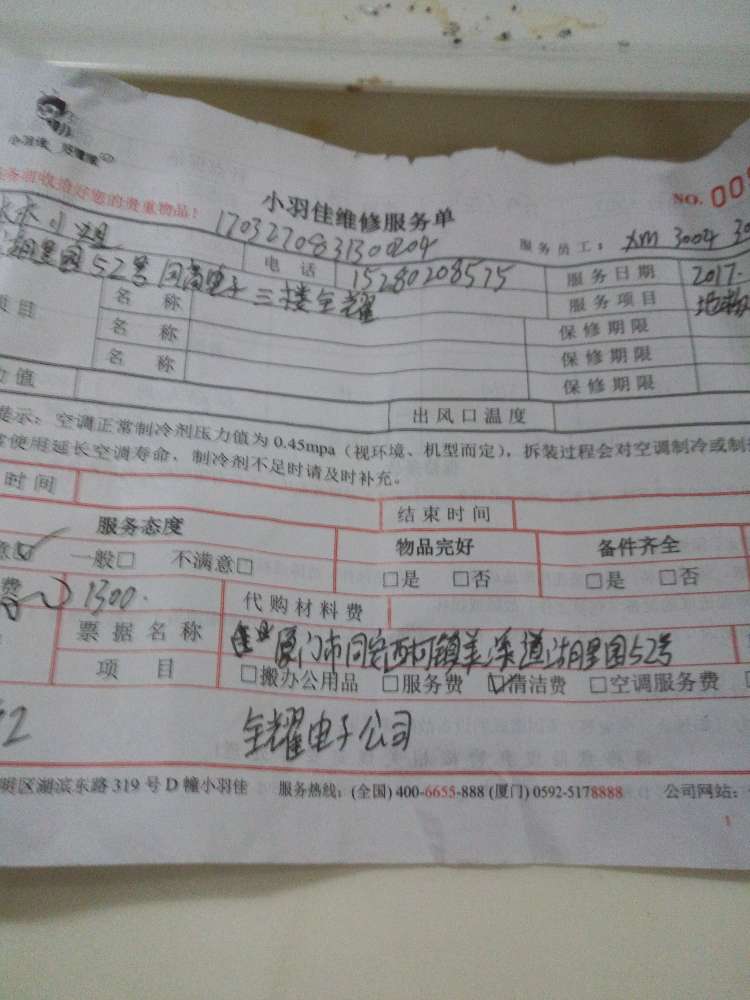 小羽佳
务前收拾好您的贵重物品!
小羽佳维修服务单
NO. 00
小姐 1703270831300204 服务员工: xm 3004
湖里园52号 电话 15280208575 服务日期 2017.
名称 三楼全耀 服务项目
项目 名称 保修期限
名称 保修期限
保修期限
力值 出风口温度
提示: 空调正常制冷剂压力值为 0.45mpa (视环境、机型而定), 拆装过程会对空调制冷或制
使用延长空调寿命, 制冷剂不足时请及时补充。
时间 结束时间
服务态度 物品完好 备件齐全
意☑ 一般□ 不满意□ □是 □否 □是 □否
费 1300. 代购材料费
票据名称 厦门市同安西柯镇美溪道湖里园52号
项目 □搬办公用品 □服务费 ☑清洁费 □空调服务费
全耀电子公司
区湖滨东路 319 号 D 幢小羽佳 服务热线: (全国) 400-6655-888 (厦门) 0592-5178888 公司网站:
1